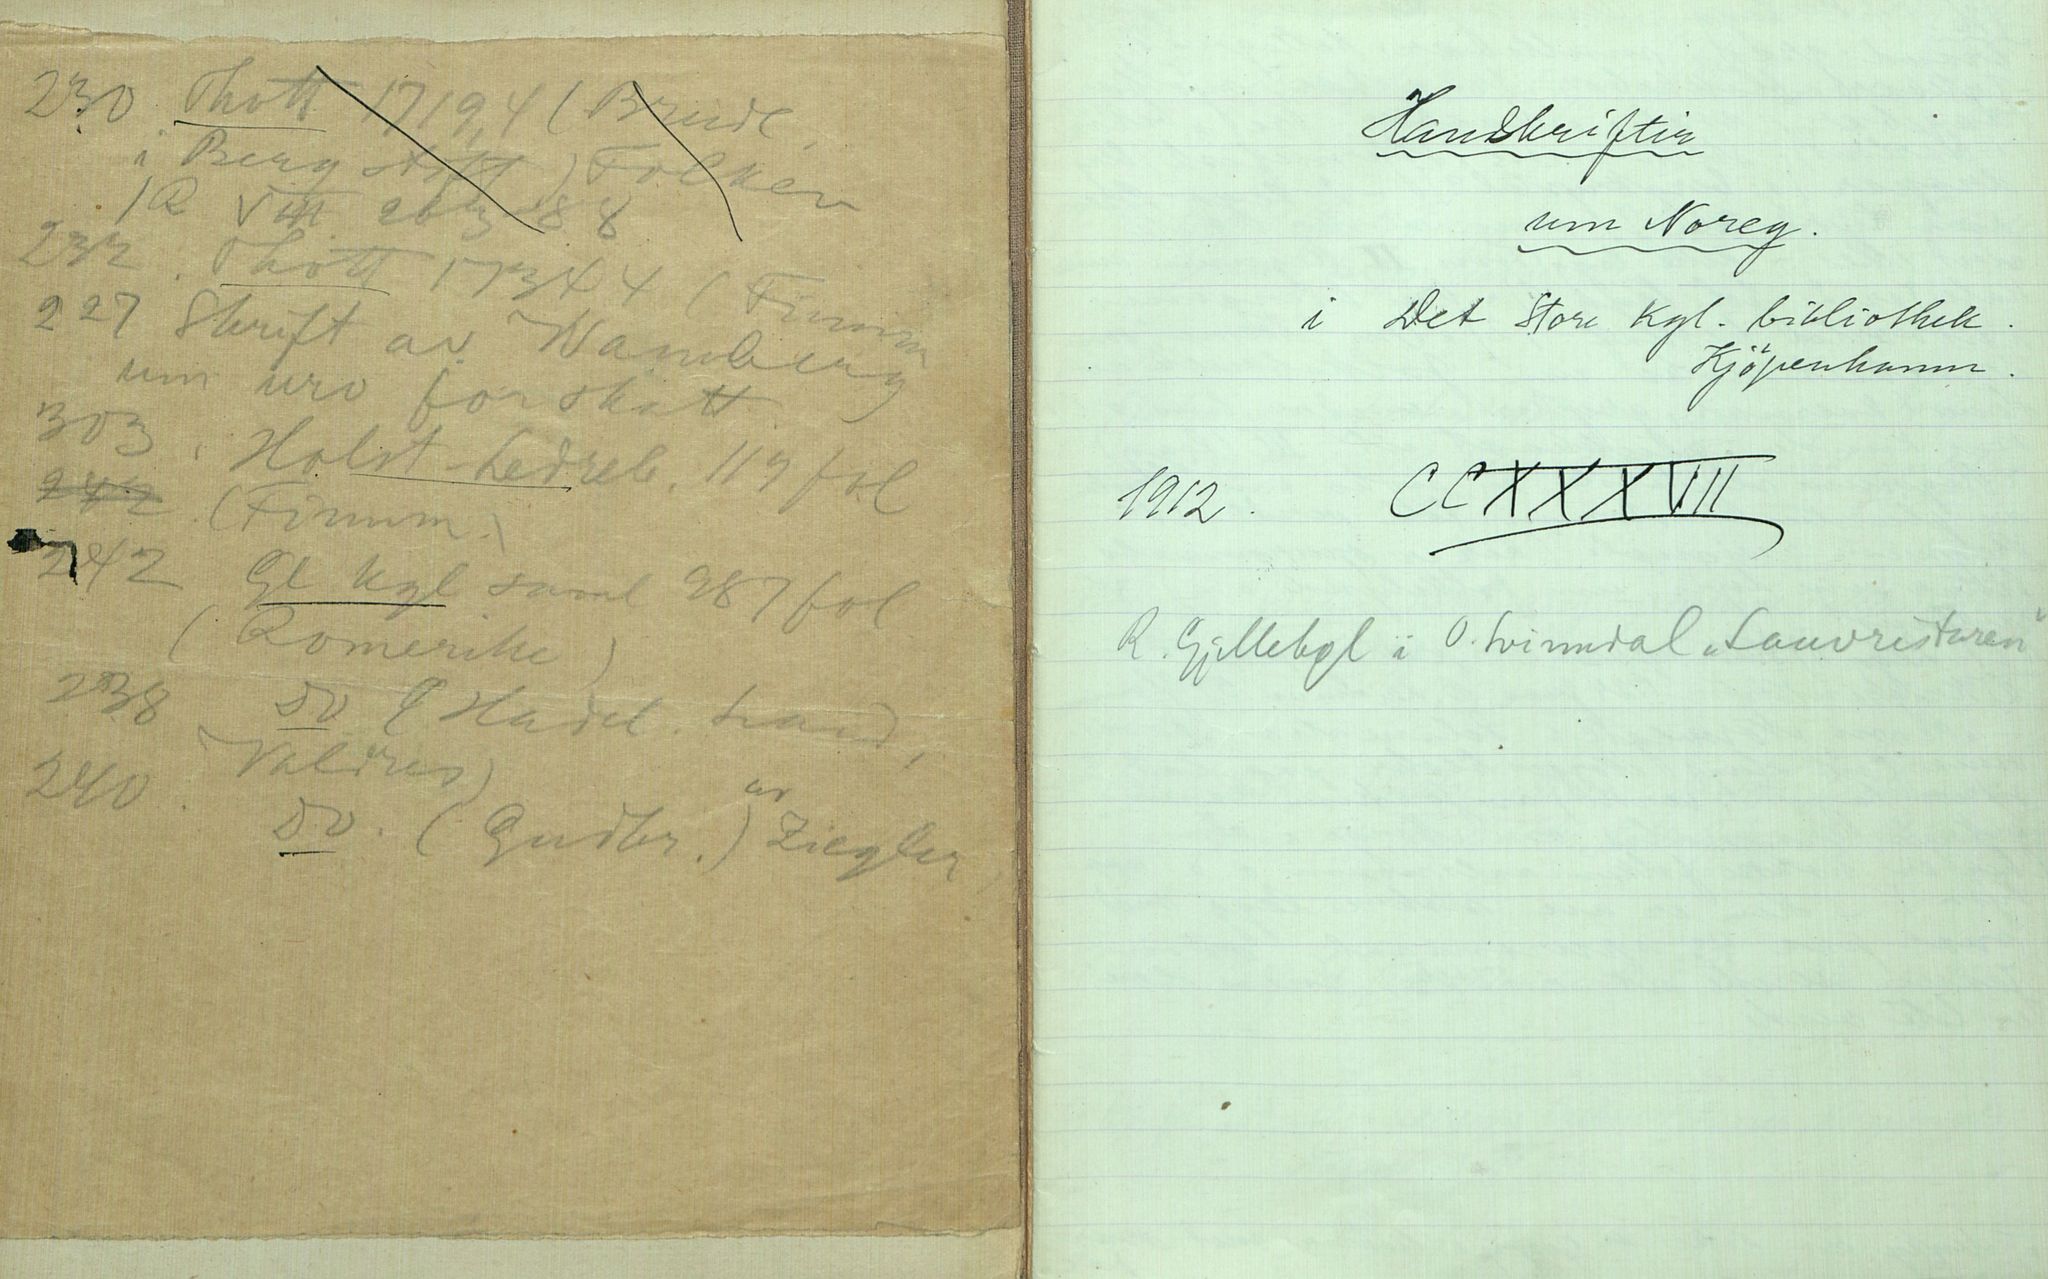 230. Thott 1719,4 (Brudl.
i Berg stift) Folken
/R VIII 2b 3 88
232. Thott 1734 4 (Finnm
227 Skrift av Wamberg
um uro for skatt
303. Holst-Ledreb. 119 fol
242 (Finnm.)
242 Gl kgl saml 987 fol
(Romerike)
238 Do (Hadel. Land,
Valdres)
240. Do. (Gudbr.) av Ziegler
Handskriftir
um Noreg.
i Det store kgl. bibliothek.
Kjöpenhamn.
1912. CCXXXVII
R. Gjellebøl i O. Svinndal „Lauvristaren"